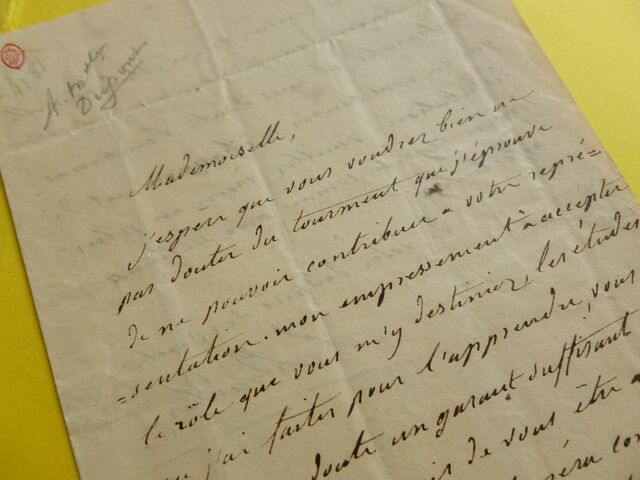 A.
Dupont
Mademoiselle,
j'espère que vous voudrez bien ne
pas douter du tourment que j'éprouve
de ne pouvoir contribuer a votre repré=
=sentation. mon empressement à accepter
le rôle que vous m'y destiniez, les études
j'ai faites pour l'apprendre, vous
doute un garant suffisant
de vous être a